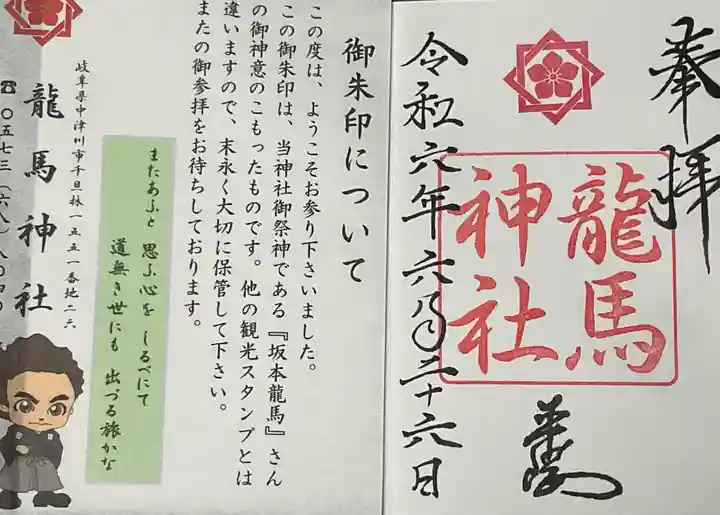 奉拝
龍馬
神社
令和六年六月二十六日
御朱印について
この度は、ようこそお参り下さいました。
この御朱印は、当神社御祭神である『坂本龍馬』さん
の御神意のこもったものです。他の観光スタンプとは
違いますので、末永く大切に保管して下さい。
またの御参拝をお待ちしております。
またあふと 思ふ心を しるべにて
道無き世にも 出づる旅かな
岐阜県中津川市千旦林一五五一番地二六
龍馬神社
☎〇五七三(六八)八〇四